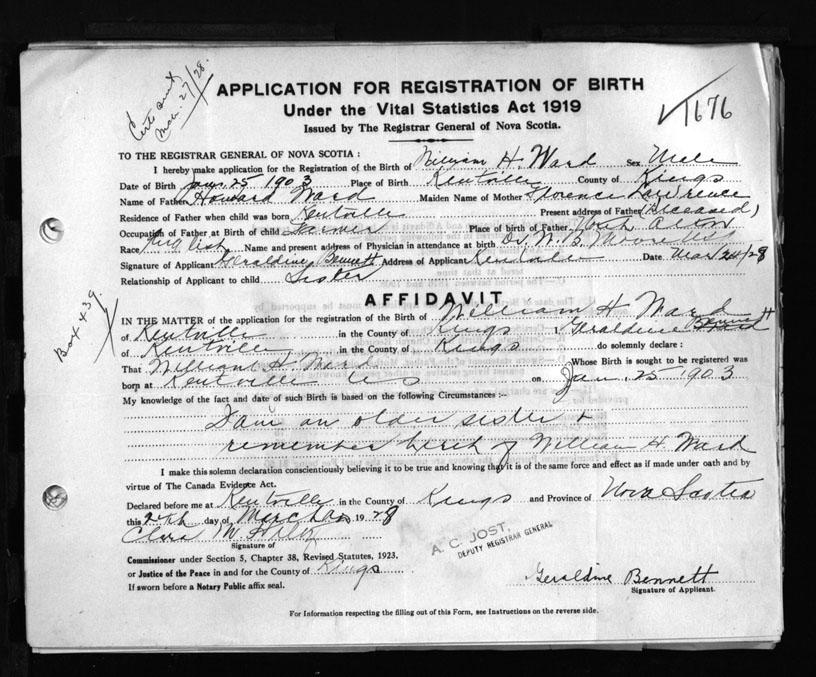 Mar. 27/28.
APPLICATION FOR REGISTRATION OF BIRTH
Under the Vital Statistics Act 1919
Issued by The Registrar General of Nova Scotia.
1676
TO THE REGISTRAR GENERAL OF NOVA SCOTIA :
I hereby make application for the Registration of the Birth of William H. Ward Sex Male
Date of Birth Jan. 25 1903 Place of Birth Kentville County of Kings
Name of Father Howard Ward Maiden Name of Mother Florence Lawrence
Residence of Father when child was born Kentville Present address of Father (Deceased)
Occupation of Father at Birth of child Farmer Place of birth of Father North Alton
Race English Name and present address of Physician in attendance at birth Dr. W. B. Moore
Signature of Applicant Geraldine Bennett Address of Applicant Kentville Date Mar 24/28
Relationship of Applicant to child Sister
AFFIDAVIT
IN THE MATTER of the application for the registration of the Birth of William H. Ward
of Kentville in the County of Kings I, Geraldine Bennett
of Kentville in the County of Kings do solemnly declare :
That William H. Ward Whose Birth is sought to be registered was
born at Kentville N S on Jan. 25 1903
My knowledge of the fact and date of such Birth is based on the following Circumstances :-
I am an older sister &
remember birth of William H Ward
I make this solemn declaration conscientiously believing it to be true and knowing that it is of the same force and effect as if made under oath and by
virtue of The Canada Evidence Act.
Declared before me at Kentville in the County of Kings and Province of Nova Scotia
this 24th day of March 1928
Clara M.
Signature of
A. C. JOST,
DEPUTY REGISTRAR GENERAL
Commissioner under Section 5, Chapter 38, Revised Statutes, 1923.
or Justice of the Peace in and for the County of Kings
If sworn before a Notary Public affix seal.
Geraldine Bennett
Signature of Applicant.
For Information respecting the filling out of this Form, see Instructions on the reverse side.
Box 439